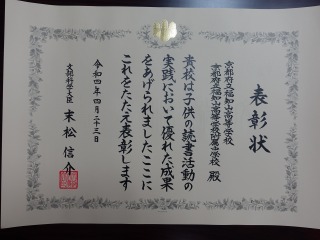 表彰状
京都府立福知山高等学校
京都府立福知山高等学校附属中学校
殿
貴校は子供の読書活動の
実践において優れた成果
をあげられましたここに
これをたたえ表彰します
令和四年四月二十三日
文部科学大臣 末松信介